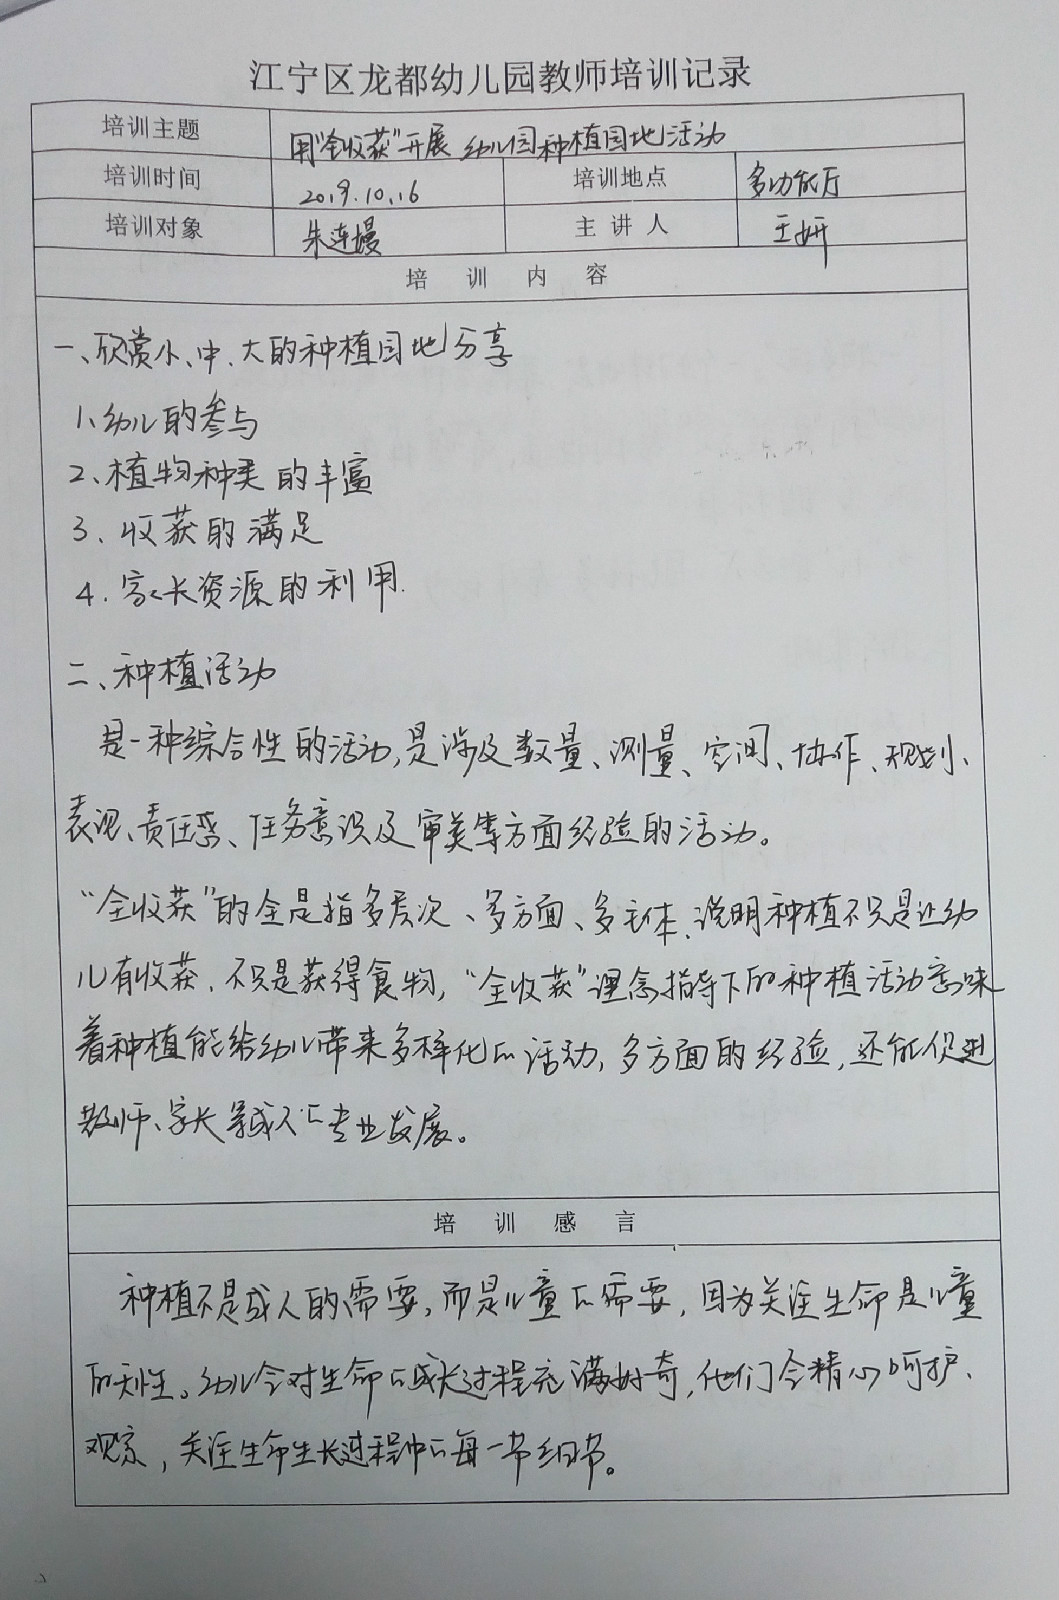 江宁区龙都幼儿园教师培训记录
培训主题 用“全收获”开展 幼儿园种植园地活动
培训时间 2019.10.16 培训地点 多功能厅
培训对象 朱连嫚 主讲人 王妍
培训内容
一、欣赏小、中、大的种植园地分享
1、幼儿的参与
2、植物种类的丰富
3、收获的满足
4.家长资源的利用.
二、种植活动
是一种综合性的活动,是涉及数量、测量、空间、协作、规划、
表现、责任感、任务意识及审美等方面经验的活动。
“全收获”的全是指多层次、多方面、多主体、说明种植不只是让幼
儿有收获、不只是获得食物,“全收获”理念指导下的种植活动意味
着种植能给幼儿带来多样化的活动,多方面的经验,还能促进
教师、家长等成人的专业发展。
培训感言
种植不是成人的需要,而是儿童的需要,因为关注生命是儿童
的天性。幼儿会对生命的成长过程充满好奇,他们会精心呵护、
观察,关注生命生长过程中的每一节细节。